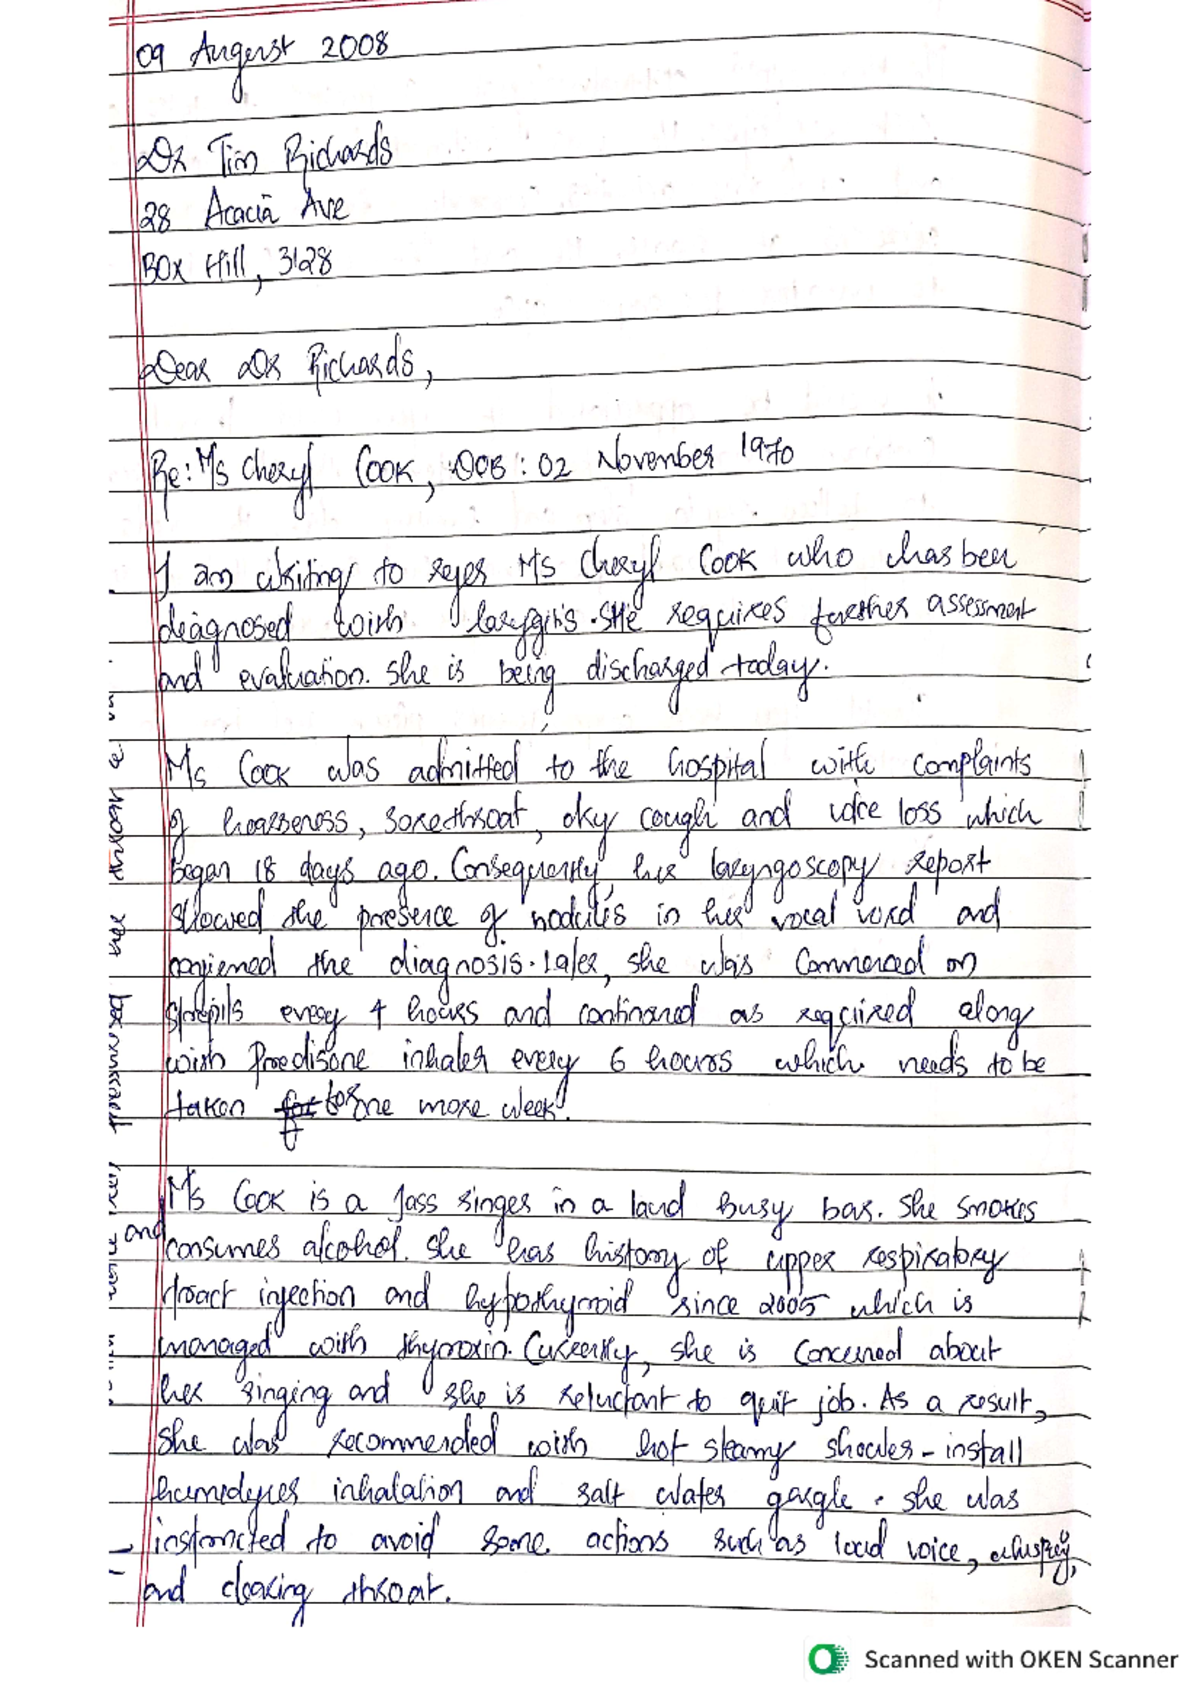 09 Augerst 2008
Dr Tim Richards
28 Acacia Ave
Box Hill, 3128
Dear Dr Richards,
Re: Ms Cheryl Cook, DOB : 02 November 1970
I am writing to refer Ms Cheryl Cook who has been
deagnosed with larygitis. She requires further assessment
and evaluation. She is being discharged today.
Ms Cook was admitted to the hospital with complaints
of hoarseness, sorethroat, dry cough and voice loss which
began 18 days ago. Consequently, her laryngoscopy report
showed the presence of nodules in her vocal and
the diagnosis. Later, she was on
every 4 hours and continued as required along
with inhaler every 6 hours which needs to be
taken for one more week.
Ms Cook is a Jass singer in a loud busy bar. She smokes
and consumes alcohol. She has history of upper respiratory
tract infection and hypothyroid since 2005 which is
managed with thyroxin. Currently, she is concerned about
her singing and she is reluctant to quit job. As a result,
she was recommended with hot steamy - install
inhalation and salt water gargle. She was
instructed to avoid some actions such as loud voice,
and clearing throat.
Scanned with OKEN Scanner